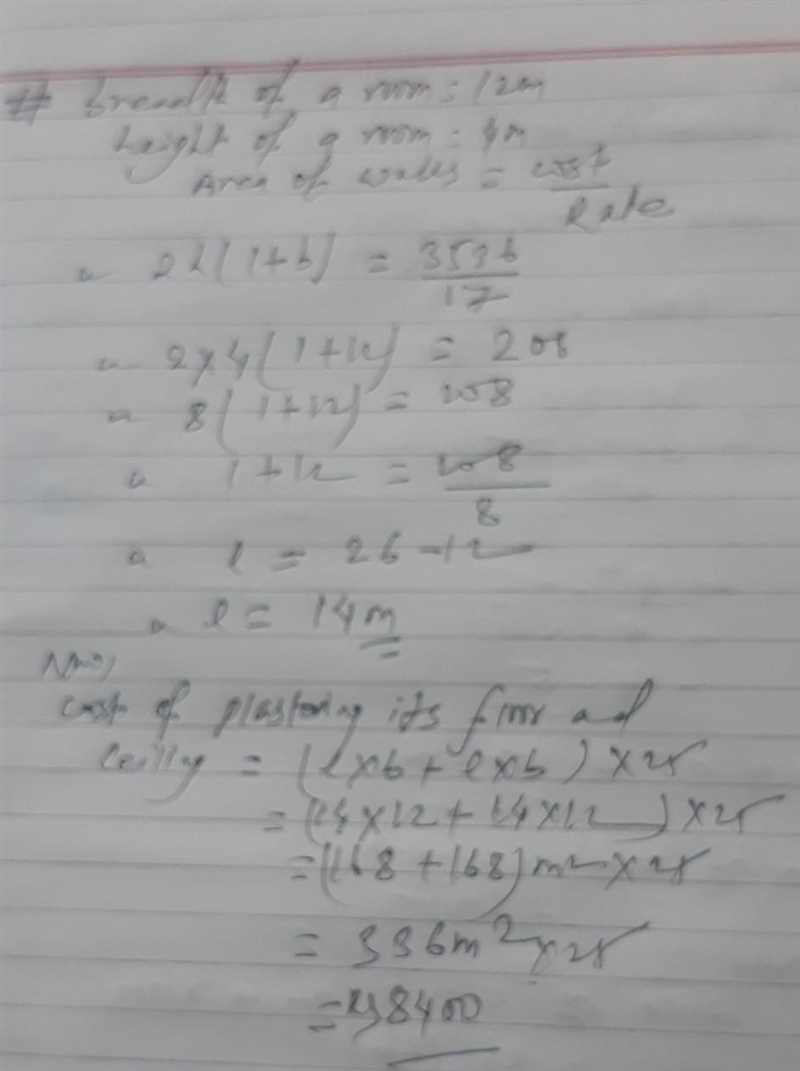 # breadth of a room = 12m
height of a room = 4m
Area of walls = cost / Rate
2h(l+b) = 3536 / 17
2×4(l+12) = 208
8(l+12) = 208
l+12 = 208 / 8
l = 26-12
l = 14m
Now,
cost of plastering its floor and
ceiling = (l×b + l×b) × 25
= (14×12 + 14×12) × 25
= (168 + 168)m² × 25
= 336m² × 25
= 8400